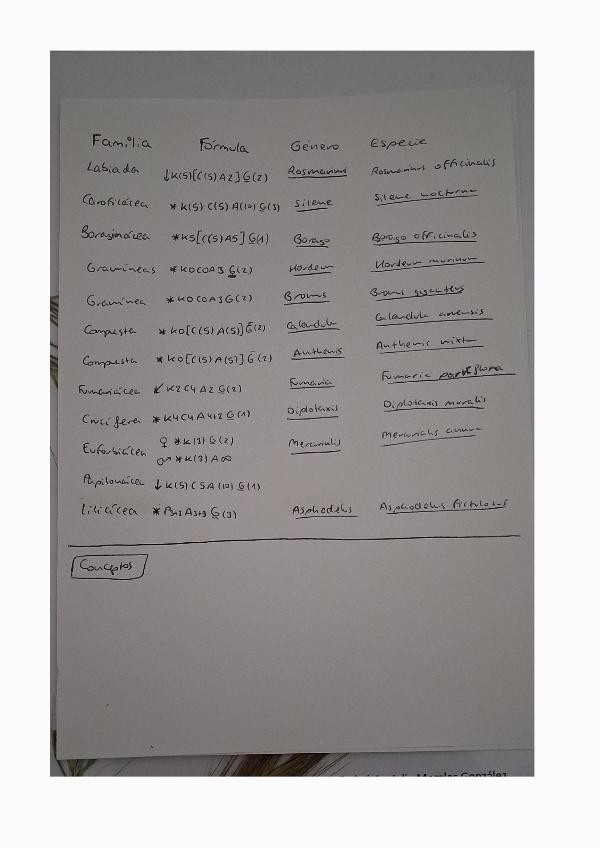 Família Fórmula Género Especie
Labiada ↓K(5)[C(5)A2]G(2) Rosmarinus Rosmarinus officinalis
Carofilácea *K(5) C(5) A(10) G(3) Silene Silene nocturna
Boraginácea *K5[C(5)A5]G(1) Borago Borago officinalis
Gramíneas *K0C0A3 G(2) Hordeum Hordeum murinum
Gramínea *K0C0A3G(2) Bromus Bromus giganteus
Compuesta *K0[C(5)A(5)]G(2) Calendula Calendula arvensis
Compuesta *K0[C(5)A(5)]G(2) Anthemis Anthemis mixta
Fumariácea ↙K2C4A2G(2) Fumaria Fumaria parviflora
Crucífera *K4C4A4+2G(1) Diplotaxis Diplotaxis muralis
Euforbiácea ♀ *K(3)G(2) Mercurialis Mercurialis annua
♂ *K(3)A∞
Papilonácea ↓K(5)C5A(10)G(1)
Liliácea *P3+3A3+3G(3) Asphodelus Asphodelus fistulosus
Conceptos
Morales González